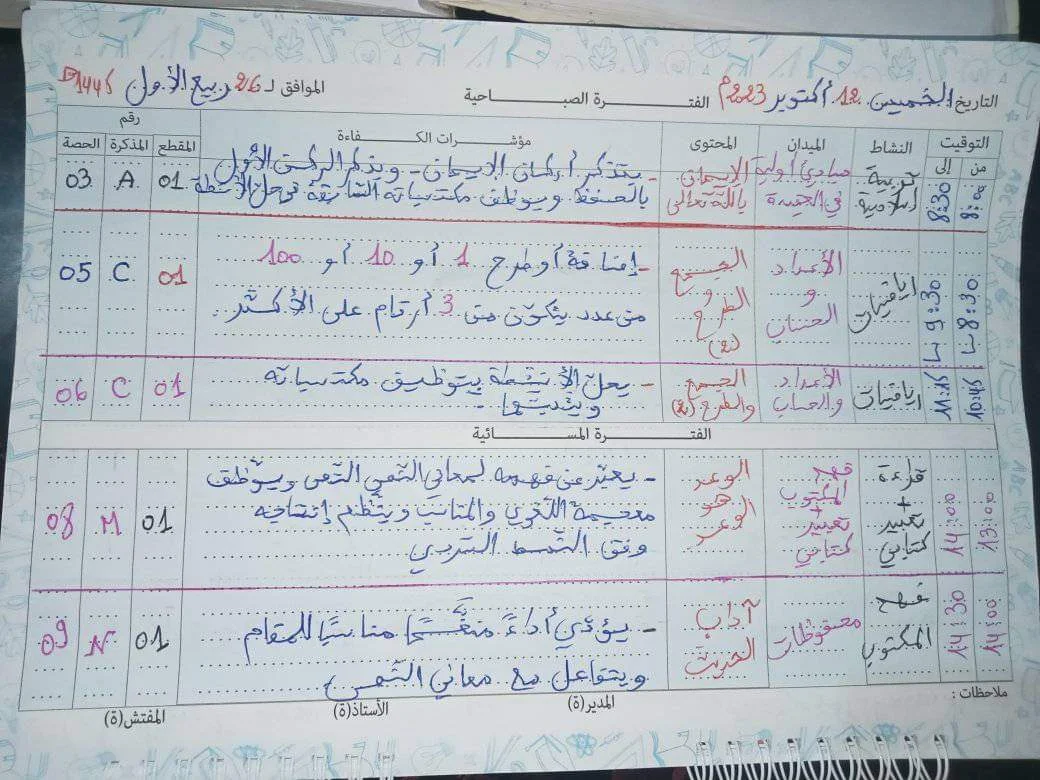 التاريخ الخميس 12 أكتوبر 2023م الفتـــرة الصبـــاحية الموافق لـ 26 ربيع الأول 1445هـ
التوقيت النشاط الميدان المحتوى مؤشرات الكـــفاءة رقم
من إلى المقطع المذكرة الحصة
8:00 8:30 تربية إسلامية مبادئ أولية في العقيدة الإيمان بالله تعالى
- يتذكر أركان الإيمان - ويذكر الركن الأول
بالحفظ ويوظف مكتسباته السابقة في حل الأنشطة
01 A 03
8:30 9:30 رياضيات الأعداد و الحساب الجمع و الطرح (2)
- إضافة أو طرح 1 أو 10 أو 100
من عدد يتكون من 3 أرقام على الأكثر
01 C 05
10:45 11:15 رياضيات الأعداد والحساب الجمع والطرح (2)
- يحل الأنشطة بتوظيف مكتسباته
ويثبتها -
01 C 06
الفتـــرة المســـائية
13:00 14:00 قراءة + تعبير كتابي فهم المكتوب + تعبير كتابي الوعد هو الوعد
- يعبر عن فهمه لمعاني النص ويوظف
معجمه اللغوي والمناسب وينظم إنتاجه
وفق النمط السردي
01 M 08
14:00 14:30 فهم المكتوب محفوظات آداب الحديث
- يؤدي أداءً منغّمًا مناسبًا للمقام
ويتفاعل مع معاني النص
01 N 09
ملاحظات :
المدير(ة) الأستاذ(ة) المفتش(ة)